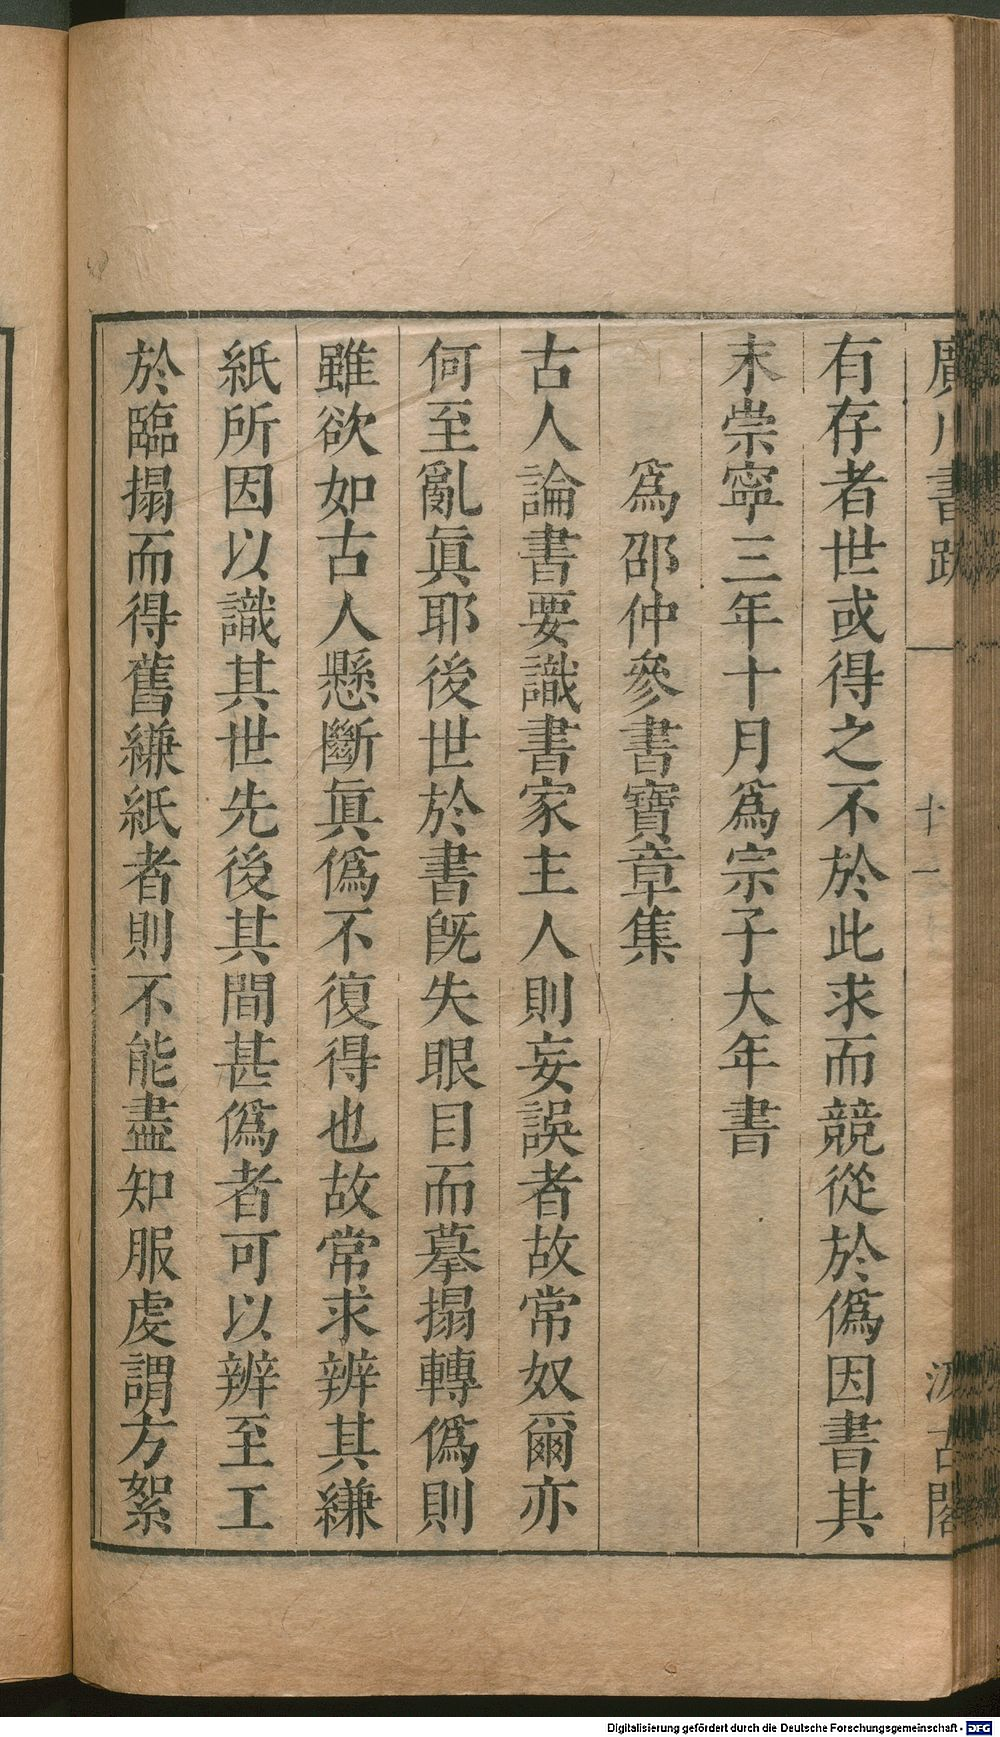 廣川書跋
十一
汲古閣
有存者世或得之不於此求而競從於僞因書其
末崇寧三年十月爲宗子大年書
爲邵仲參書寶章集
古人論書要識書家主人則妄誤者故常奴爾亦
何至亂眞耶後世於書旣失眼目而摹搨轉僞則
雖欲如古人懸斷眞僞不復得也故常求辨其縑
紙所因以識其世先後其間甚僞者可以辨至工
於臨搨而得舊縑紙者則不能盡知服虔謂方絮
Digitalisierung gefördert durch die Deutsche Forschungsgemeinschaft - DFG